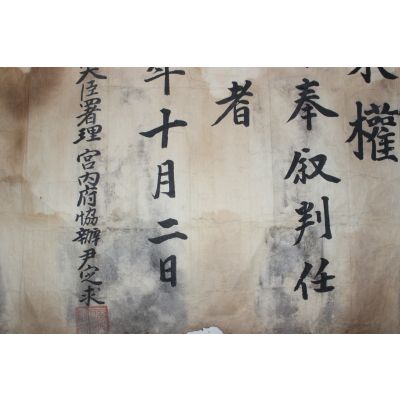 權
奉叙判任
者
年十月二日
大臣署理宮内府協辦尹定求